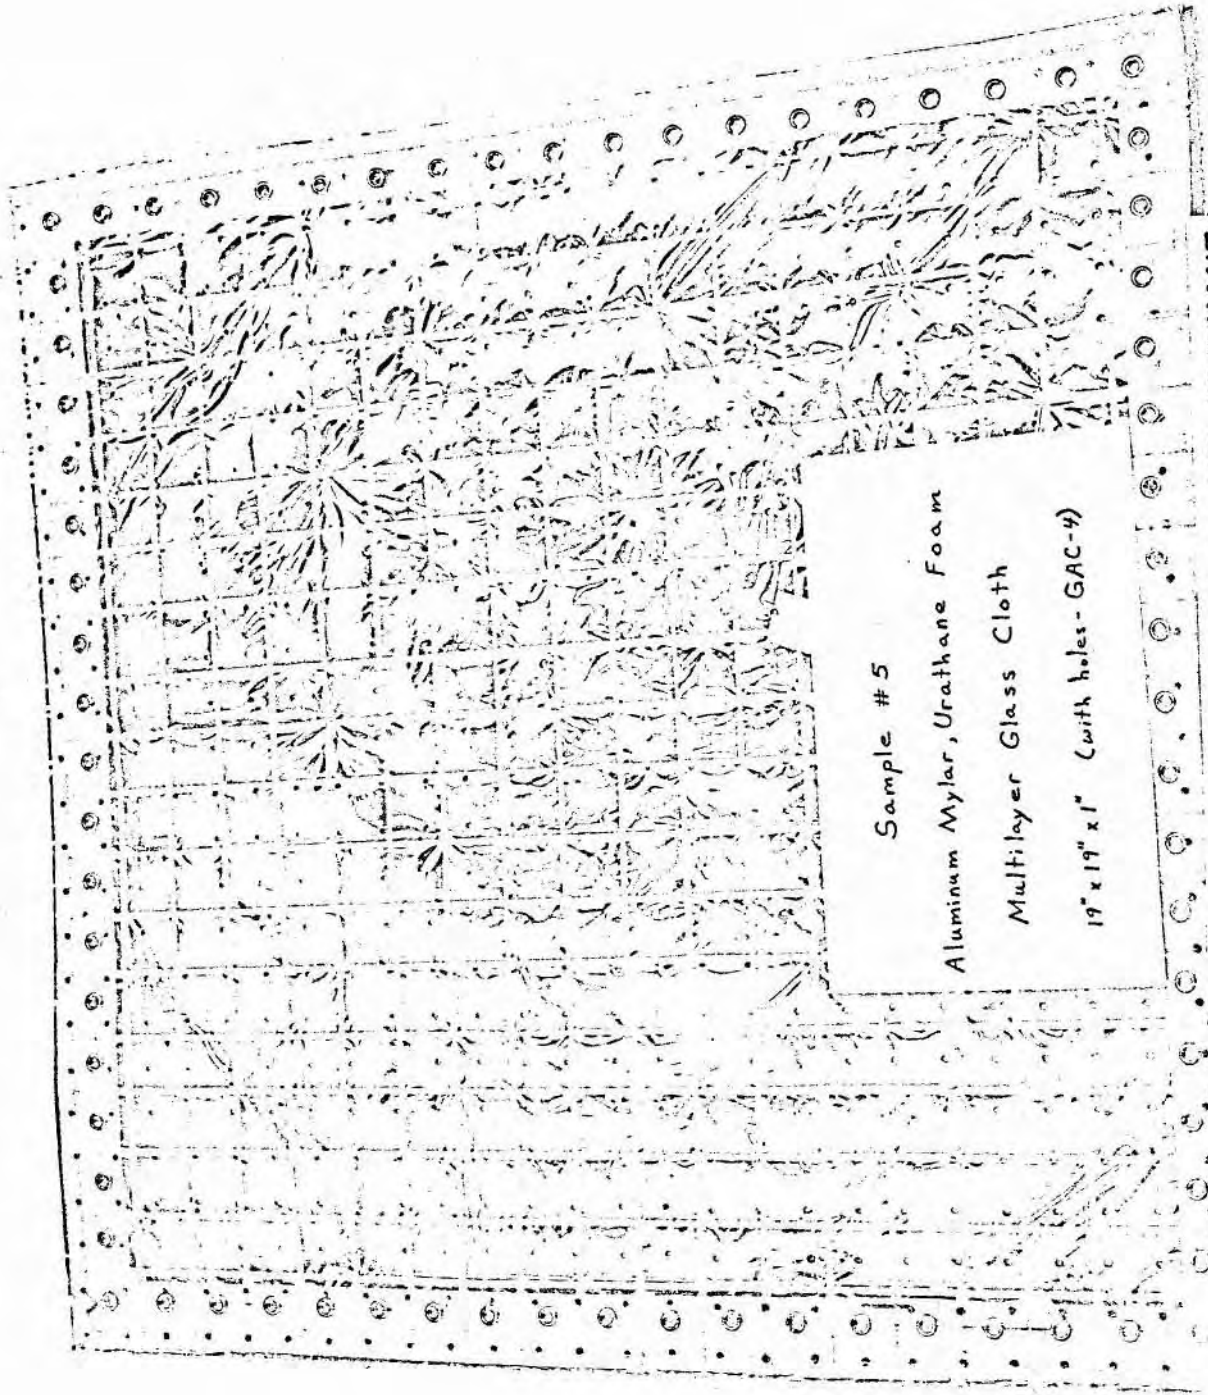 Sample #5
Aluminum Mylar, Urathane Foam
Multilayer Glass Cloth
19" x 19" x 1" (with holes-GAC-4)